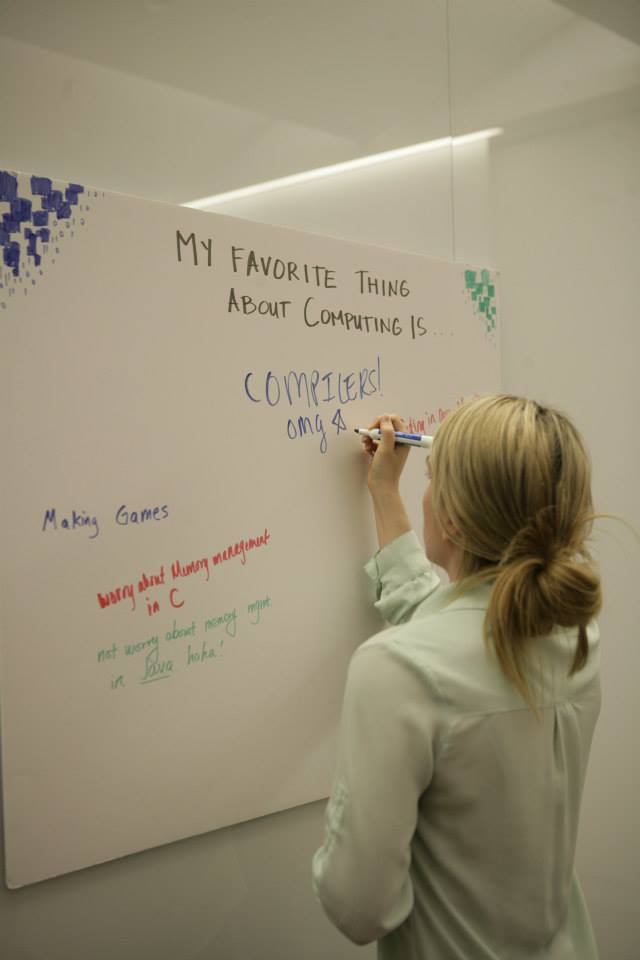 MY FAVORITE THING
ABOUT COMPUTING IS...
COMPILERS!
omg
in
Making Games
worry about Memory management
in C
not worry about memory mgmt.
in Java haha!